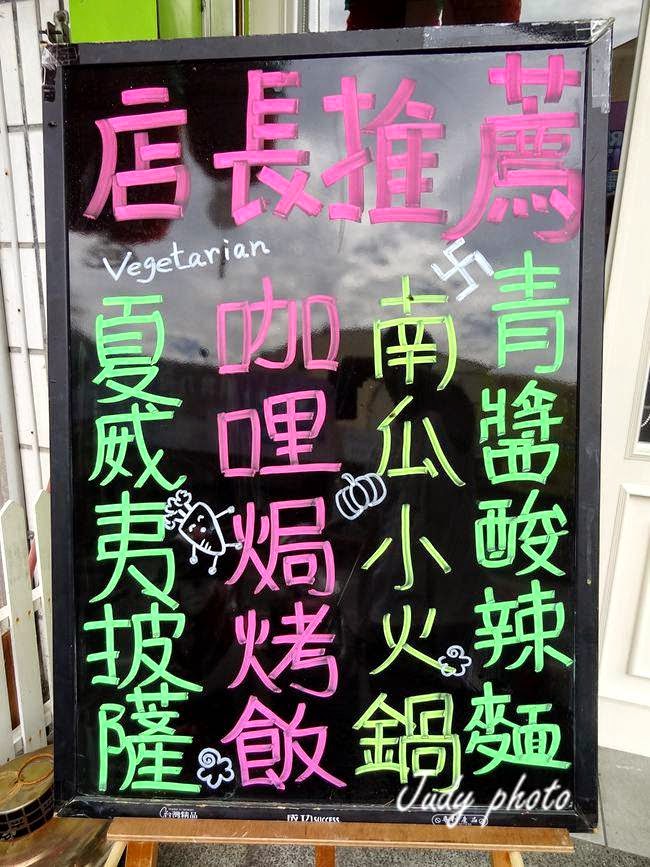 店長推薦
Vegetarian
卍
青醬酸辣麵
南瓜小火鍋
咖哩焗烤飯
夏威夷披薩
Judy photo
台灣精品
成功 SUCCESS